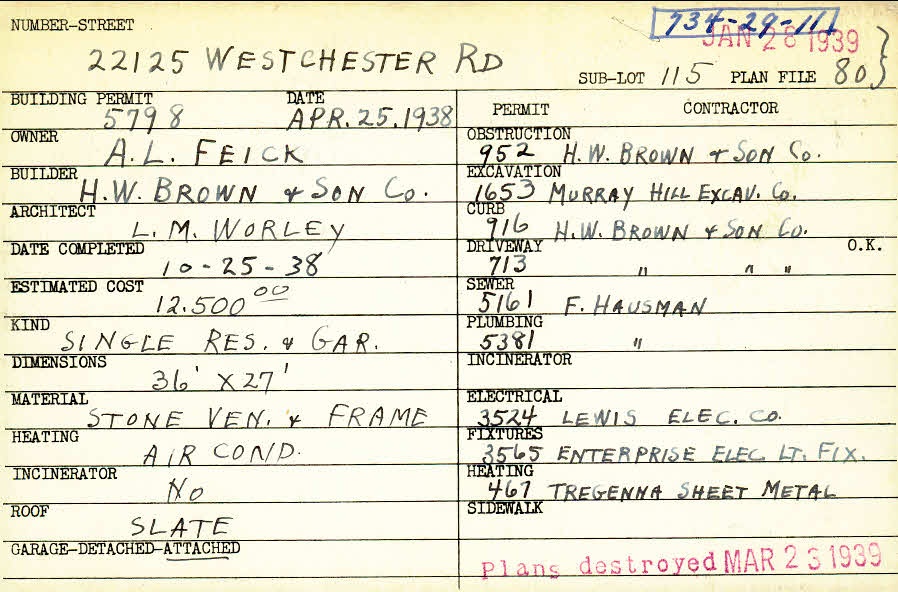 NUMBER-STREET 734-29-11
JAN 28 1939
22125 WESTCHESTER RD
SUB-LOT 115 PLAN FILE 80
BUILDING PERMIT DATE
5798 APR. 25. 1938
OWNER
A. L. FEICK
BUILDER
H. W. BROWN & SON CO.
ARCHITECT
L. M. WORLEY
DATE COMPLETED
10-25-38
ESTIMATED COST
12.500 00
KIND
SINGLE RES. & GAR.
DIMENSIONS
36' X 27'
MATERIAL
STONE VEN. & FRAME
HEATING
AIR COND.
INCINERATOR
NO
ROOF
SLATE
GARAGE-DETACHED-ATTACHED
PERMIT CONTRACTOR
OBSTRUCTION
952 H. W. BROWN & SON CO.
EXCAVATION
1653 MURRAY HILL EXCAV. CO.
CURB
916 H. W. BROWN & SON CO.
DRIVEWAY O.K.
713 " " "
SEWER
5161 F. HAUSMAN
PLUMBING
5381 "
INCINERATOR
ELECTRICAL
3524 LEWIS ELEC. CO.
FIXTURES
3565 ENTERPRISE ELEC LT. FIX.
HEATING
467 TREGENNA SHEET METAL
SIDEWALK
Plans destroyed MAR 23 1939